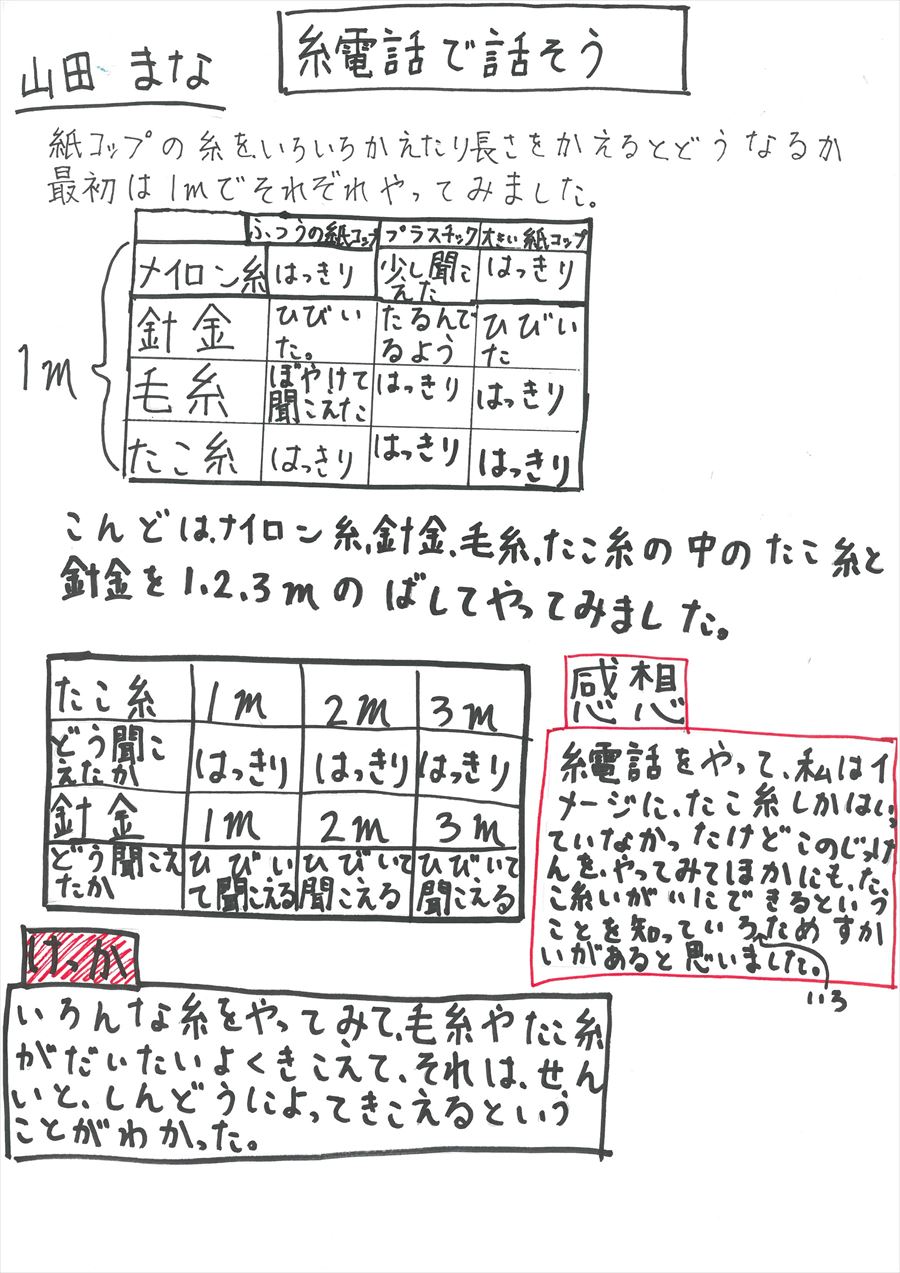 糸電話で話そう
山田 まな
紙コップの糸を、いろいろかえたり長さをかえるとどうなるか
最初は1mでそれぞれやってみました。
ふつうの紙コップ プラスチック 大きい紙コップ
1m
メイロン糸 はっきり 少し聞こえた はっきり
針金 ひびいた。 たるんでるよう ひびいた
毛糸 ぼやけて聞こえた はっきり はっきり
たこ糸 はっきり はっきり はっきり
こんどは、ナイロン糸、針金、毛糸、たこ糸の中のたこ糸と
針金を1、2、3mのばしてやってみました。
たこ糸 1m 2m 3m
どう聞こえたか はっきり はっきり はっきり
針金 1m 2m 3m
どう聞こえたか ひびいて聞こえる ひびいて聞こえる ひびいて聞こえる
感想
糸電話をやって、私はイ
メージに、たこ糸しかはいっ
ていなかったけどこのじっけ
んを、やってみてほかにも、た
こ糸いがいにできるという
ことを知っていろためすか
いがあると思いました。
いろ
けっか
いろんな糸をやってみて、毛糸やたこ糸
がだいたいよくきこえて、それは、せん
いと、しんどうによってきこえるという
ことがわかった。